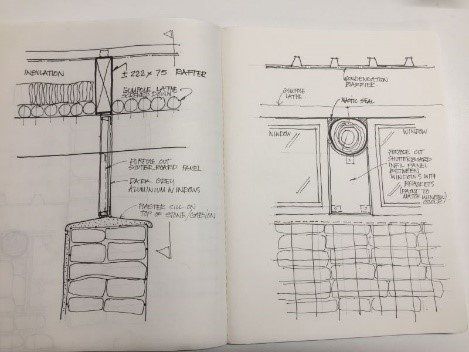 INSULATION
± 222 x 75 RAFTER
GUMPOLE LATHE
PURPOSE CUT
SHUTTERBOARD PANEL
DARK GREY
ALUMINIUM WINDOWS
PLASTER CILL ON
TOP OF STONE/GABION
CONDENSATION
BARRIER
GUMPOLE
LATHE
MASTIC SEAL
WINDOW
WINDOW
PURPOSE CUT
SHUTTERBOARD
INFILL PANEL
BETWEEN
WINDOWS WITH
BRACKETS
(PAINT TO
MATCH WINDOW